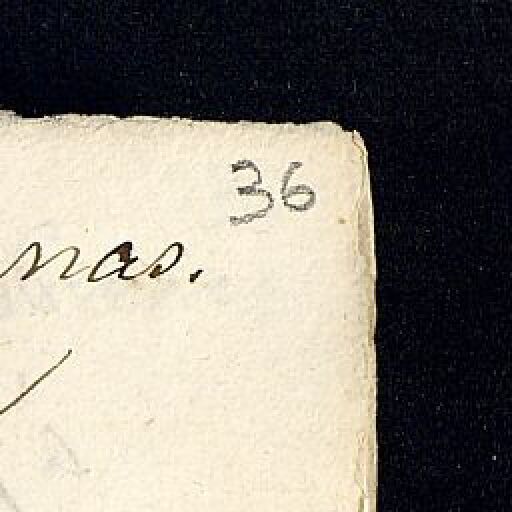 36
nas.